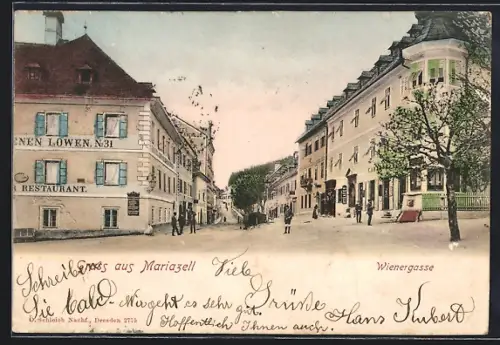 ENEN LÖWEN, No 31
RESTAURANT.
Gruss aus Mariazell
Wienergasse
Schreiben
Sie bald
Viele
Grüße
Mir geht es sehr gut
Hoffentlich Ihnen auch.
Hans Kubert
Nachf., Dresden 2775